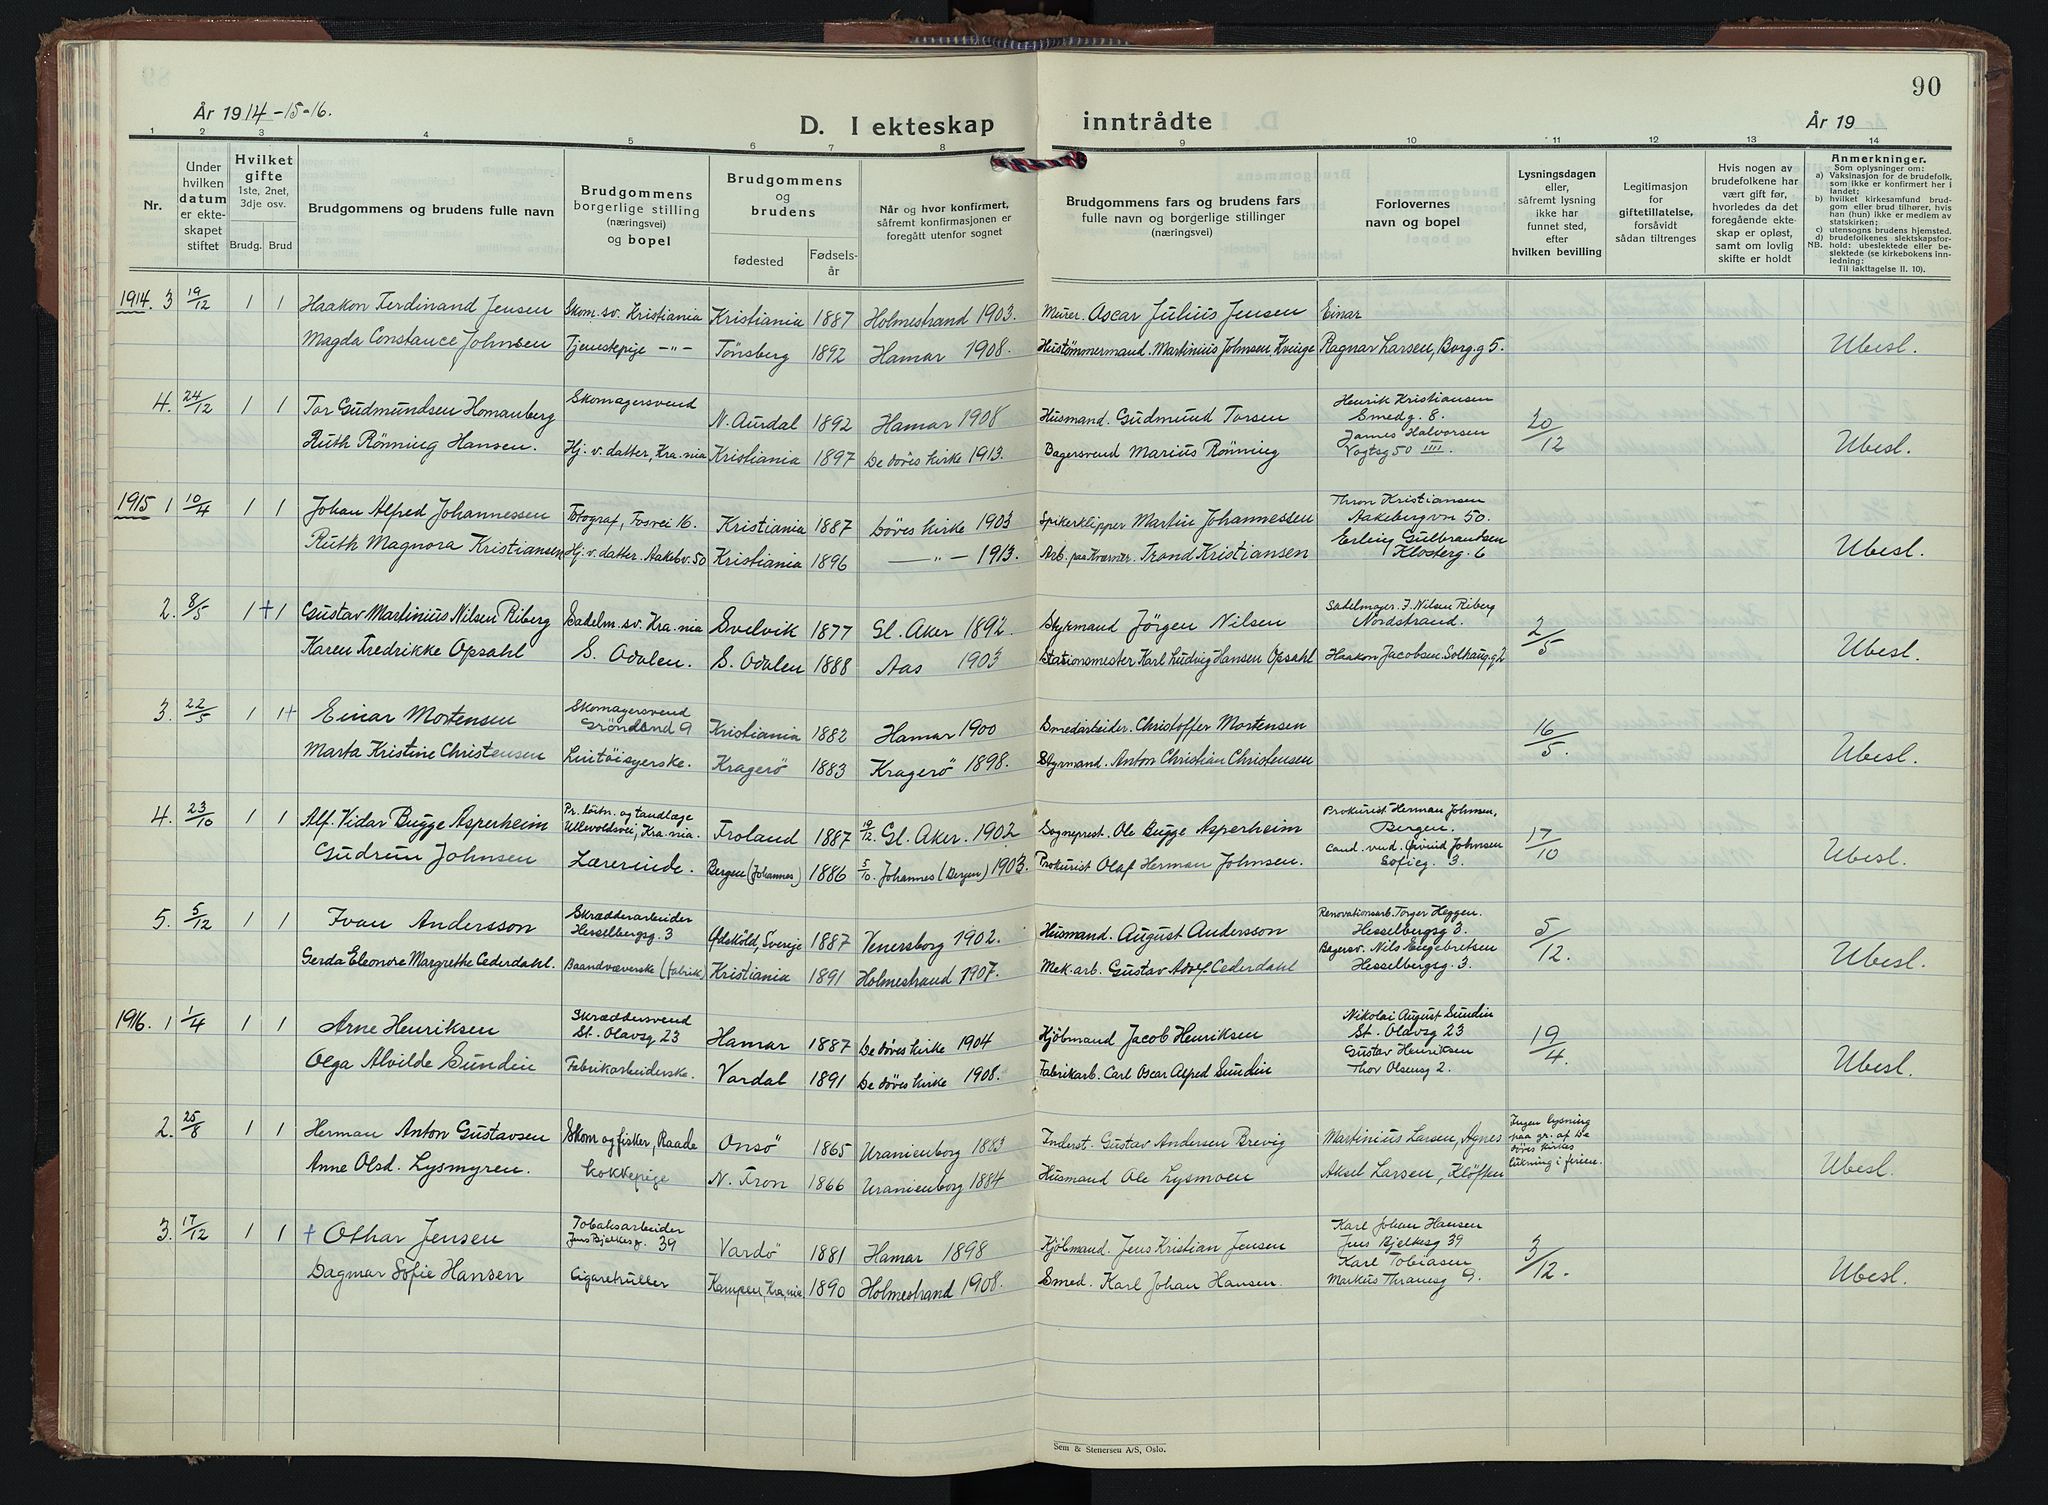 År 1914-15-16.
D. I ekteskap inntrådte
År 19
90
1 2 3 4 5 6 7 8 9 10 11 12 13 14
Nr.
Under hvilken datum er ekteskapet stiftet
Hvilket gifte 1ste, 2net, 3dje osv.
Brudg. Brud
Brudgommens og brudens fulle navn
Brudgommens borgerlige stilling (næringsvei) og bopel
Brudgommens og brudens
fødested
Fødselsår
Når og hvor konfirmert, såfremt konfirmasjonen er foregått utenfor sognet
Brudgommens fars og brudens fars fulle navn og borgerlige stillinger (næringsvei)
Forlovernes navn og bopel
Lysningsdagen eller, såfremt lysning ikke har funnet sted, efter hvilken bevilling
Legitimasjon for giftetillatelse, forsåvidt sådan tiltrenges
Hvis nogen av brudefolkene har vært gift før, hvorledes da det foregående ekteskap er opløst, samt om lovlig skifte er holdt
Anmerkninger.
Som oplysninger om:
a) Vaksinasjon for de brudefolk, som ikke er konfirmert her i landet;
b) hvilket kirkesamfund brudgom eller brud tilhører, hvis han (hun) ikke er medlem av statskirken;
c) utensogns brudens hjemsted.
d) brudefolkenes slektskapsforhold: ubeslektede eller beslektede (se kirkebokens innledning:
NB.
Til iakttagelse II. 10).
1914. 3 19/12 1 1 Haakon Ferdinand Jensen Skom.sv. Kristiania Kristiania 1887 Holmestrand 1903. Murer. Oscar Julius Jensen Einar
Magda Constance Johnsen Tjenestepije -"- Tønsberg 1892 Hamar 1908. Hustømmermand. Martinius Johnsen, Kvinge Ragnar Larsen, Borg.g 5. Ubesl.
4. 24/12 1 1 Tor Gudmundsen Homanberg Skomagersvend N. Aurdal 1892 Hamar 1908 Husmand. Gudmund Torsen Henrik Kristiansen Smedg. 8. 20/12
Ruth Rønning Hansen. Hj. v. datter, Kra.nia Kristiania 1897 De døves kirke 1913. Bagersvend Marius Rønning James Halvorsen Vogtsg 50 III. Ubesl.
1915 1 10/4 1 1 Johan Alfred Johannessen Fotograf, Fosvei 16. Kristiania 1887 Døves kirke 1903 Spikerklipper Martin Johannessen Thron Kristiansen Aakebergvn 50.
Ruth Magnora Kristiansen Hj. v. datter. Aakebv. 50 Kristiania 1896 -"- 1913. Arb. paa Kværner. Trond Kristiansen Erling Gulbrantsen Klosterg. 6 Ubesl.
2. 8/5 1 + 1 Gustav Martinius Nilsen Riberg Sadelm. sv. Kra.nia Svelvik 1877 Gl. Aker 1892. Styrmand Jörgen Nilsen Sadelmager. J. Nilsen Riberg Nordstrand. 2/5
Karen Fredrikke Opsahl S. Odalen. S. Odalen 1888 Aas 1903 Stationsmester Karl Ludvig Hansen Opsahl Haakon Jacobsen. Solhaug.g 2 Ubesl.
3. 22/5 1 1+ Einar Mortensen Skomagersvend Grønland 9 Kristiania 1882 Hamar 1900 Smedarbeider. Christoffer Mortensen 16/5
Marta Kristine Christensen Lintöisyerske. Kragerö 1883 Kragerö 1898. Styrmand. Anton Christian Christensen Ubesl.
4. 23/10 1 1 Alf. Vidar Bugge Asperheim Pr. löitn. og tandlæge Ullevoldsvei, Kra.nia. Froland 1887 19/12. Gl. Aker. 1902 Sogneprest. Ole Bugge Asperheim Prokurist Herman Johnsen, Bergen. 17/10
Gudrun Johnsen Lærerinde. Bergen (Johannes) 1886 5/10. Johannes (Bergen) 1903. Prokurist Olaf Herman Johnsen. cand. med. Øivind Johnsen Sofieg. 3. Ubesl.
5. 5/12 1 1 Ivan Andersson Skrædderarbeider Hesselbergsg. 3 Ødsköld, Sverige 1887 Venersborg 1902. Husmand. August Andersson Renovationsarb. Torger Heggen. Hesselbergsg 3 5/12.
Gerda Eleonore Margrethe Cederdahl. Baandvæverske (fabrik) Kristiania 1891 Holmestrand 1907. Mek. arb. Gustav Adolf Cederdahl Bagersv. Nils Engebretsen Hesselbergsg. 3. Ubesl.
1916. 1 1/4 1 1 Arne Henriksen Skræddersvend St. Olavsg 23 Hamar 1887 De døves kirke 1904 Kjöbmand Jacob Henriksen Nikolai August Sundin St. Olavsg 23 19/4
Olga Alvilde Sundin Fabrikarbeiderske. Vardal 1891 De døves kirke 1908. Fabrikarb. Carl Oscar Alfred Sundin Gustav Henriksen Thor Olsensg 2. Ubesl.
2. 25/8 1 1 Herman Anton Gustavsen Skom og fisker, Raade Onsö 1865 Uranienborg 1883 Inderst. Gustav Andersen Brevig Martinius Larsen, Agnes Ingen lysning paa gr. af De døves kirkes lukning i ferien.
Anne Olsd. Lysmyren. Kokkepige N. Fron 1866 Uranienborg 1884 Husmand Ole Lysmoen Aksel Larsen, Klöften Ubesl.
3. 17/12 1 1 + Othar Jensen Tobaksarbeider Jens Bjelkesg. 39 Vardö 1881 Hamar 1898 Kjöbmand. Jens Kristian Jensen Karl Johan Hansen Jens Bjelkesg 39 3/12.
Dagmar Sofie Hansen Cigaretruller Kampen, Kra.nia 1890 Holmestrand 1908. Smed. Karl Johan Hansen. Karl Tobiasen Markus Thranesg 9. Ubesl.
Sem & Stenersen A/S, Oslo.